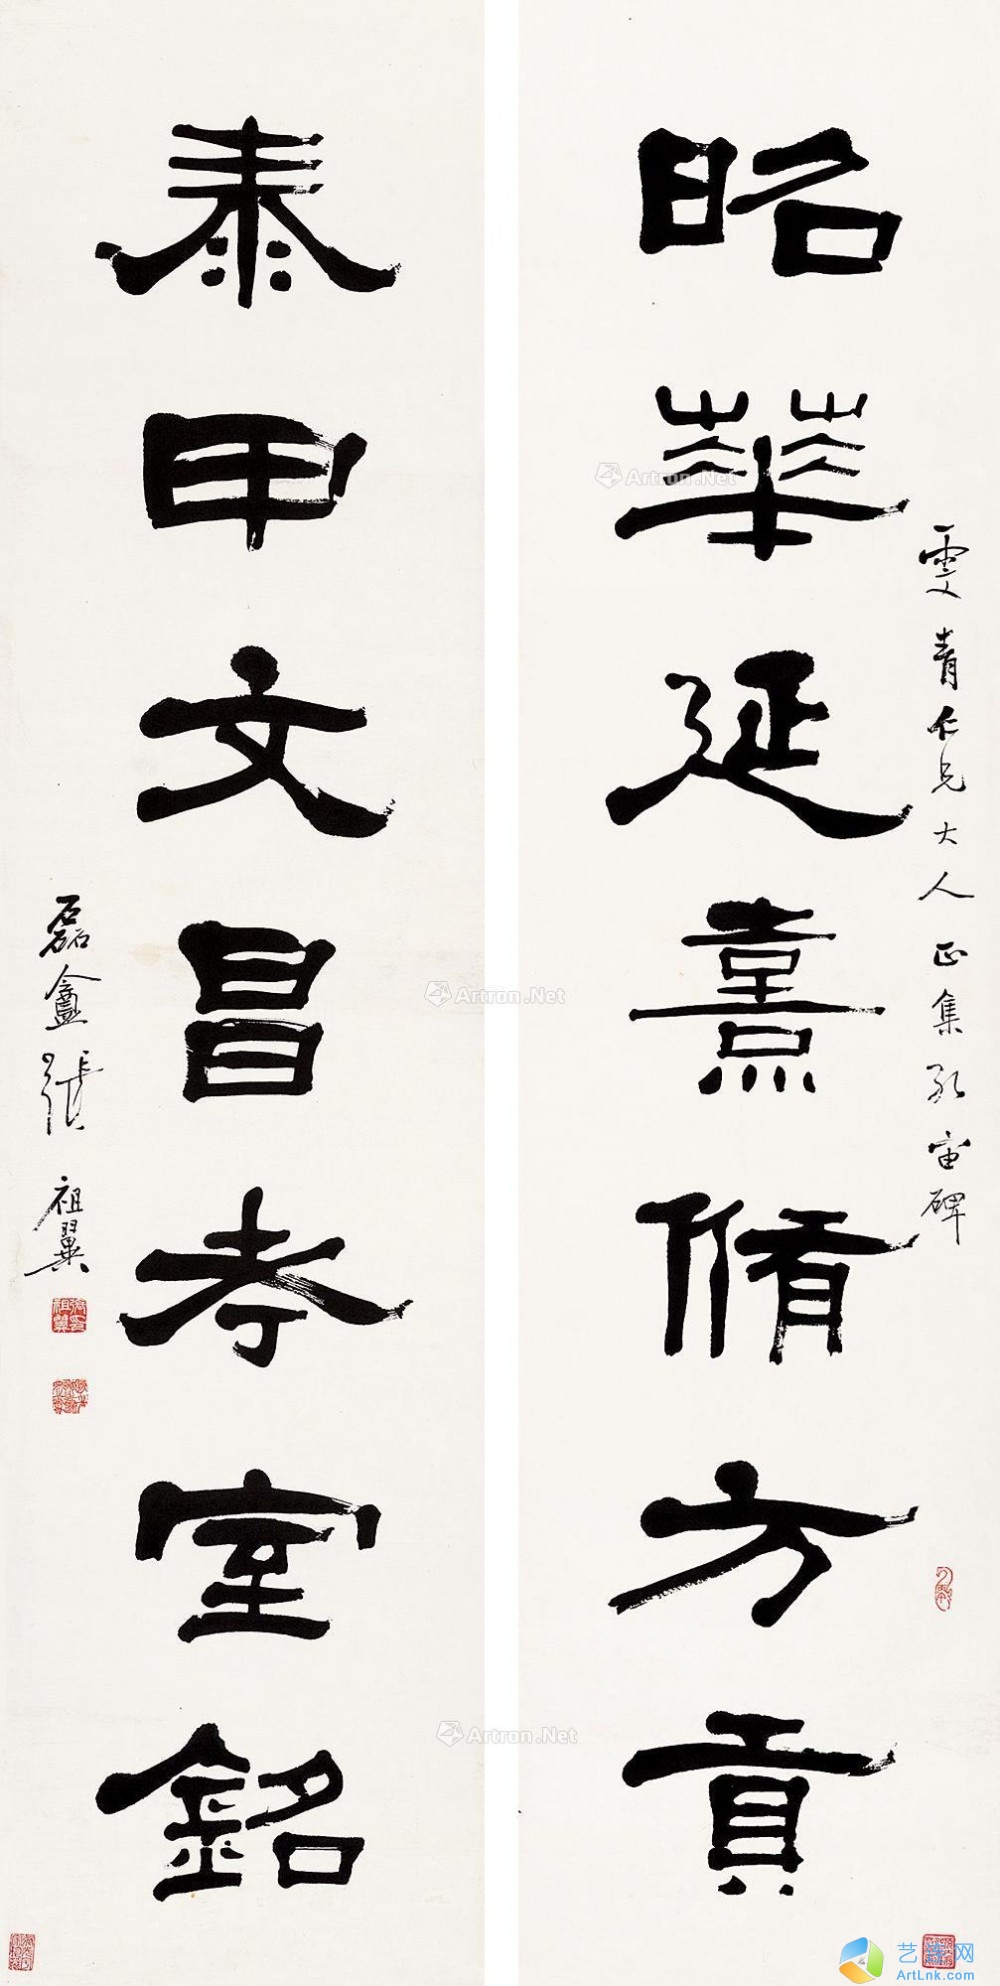 昭華延熹脩方貢
雯青仁兄大人正集孔宙碑
泰甲文昌孝室銘
磊盦張祖翼
Artron.Net
Artron.Net
Artron.Net
ArtLnk.com